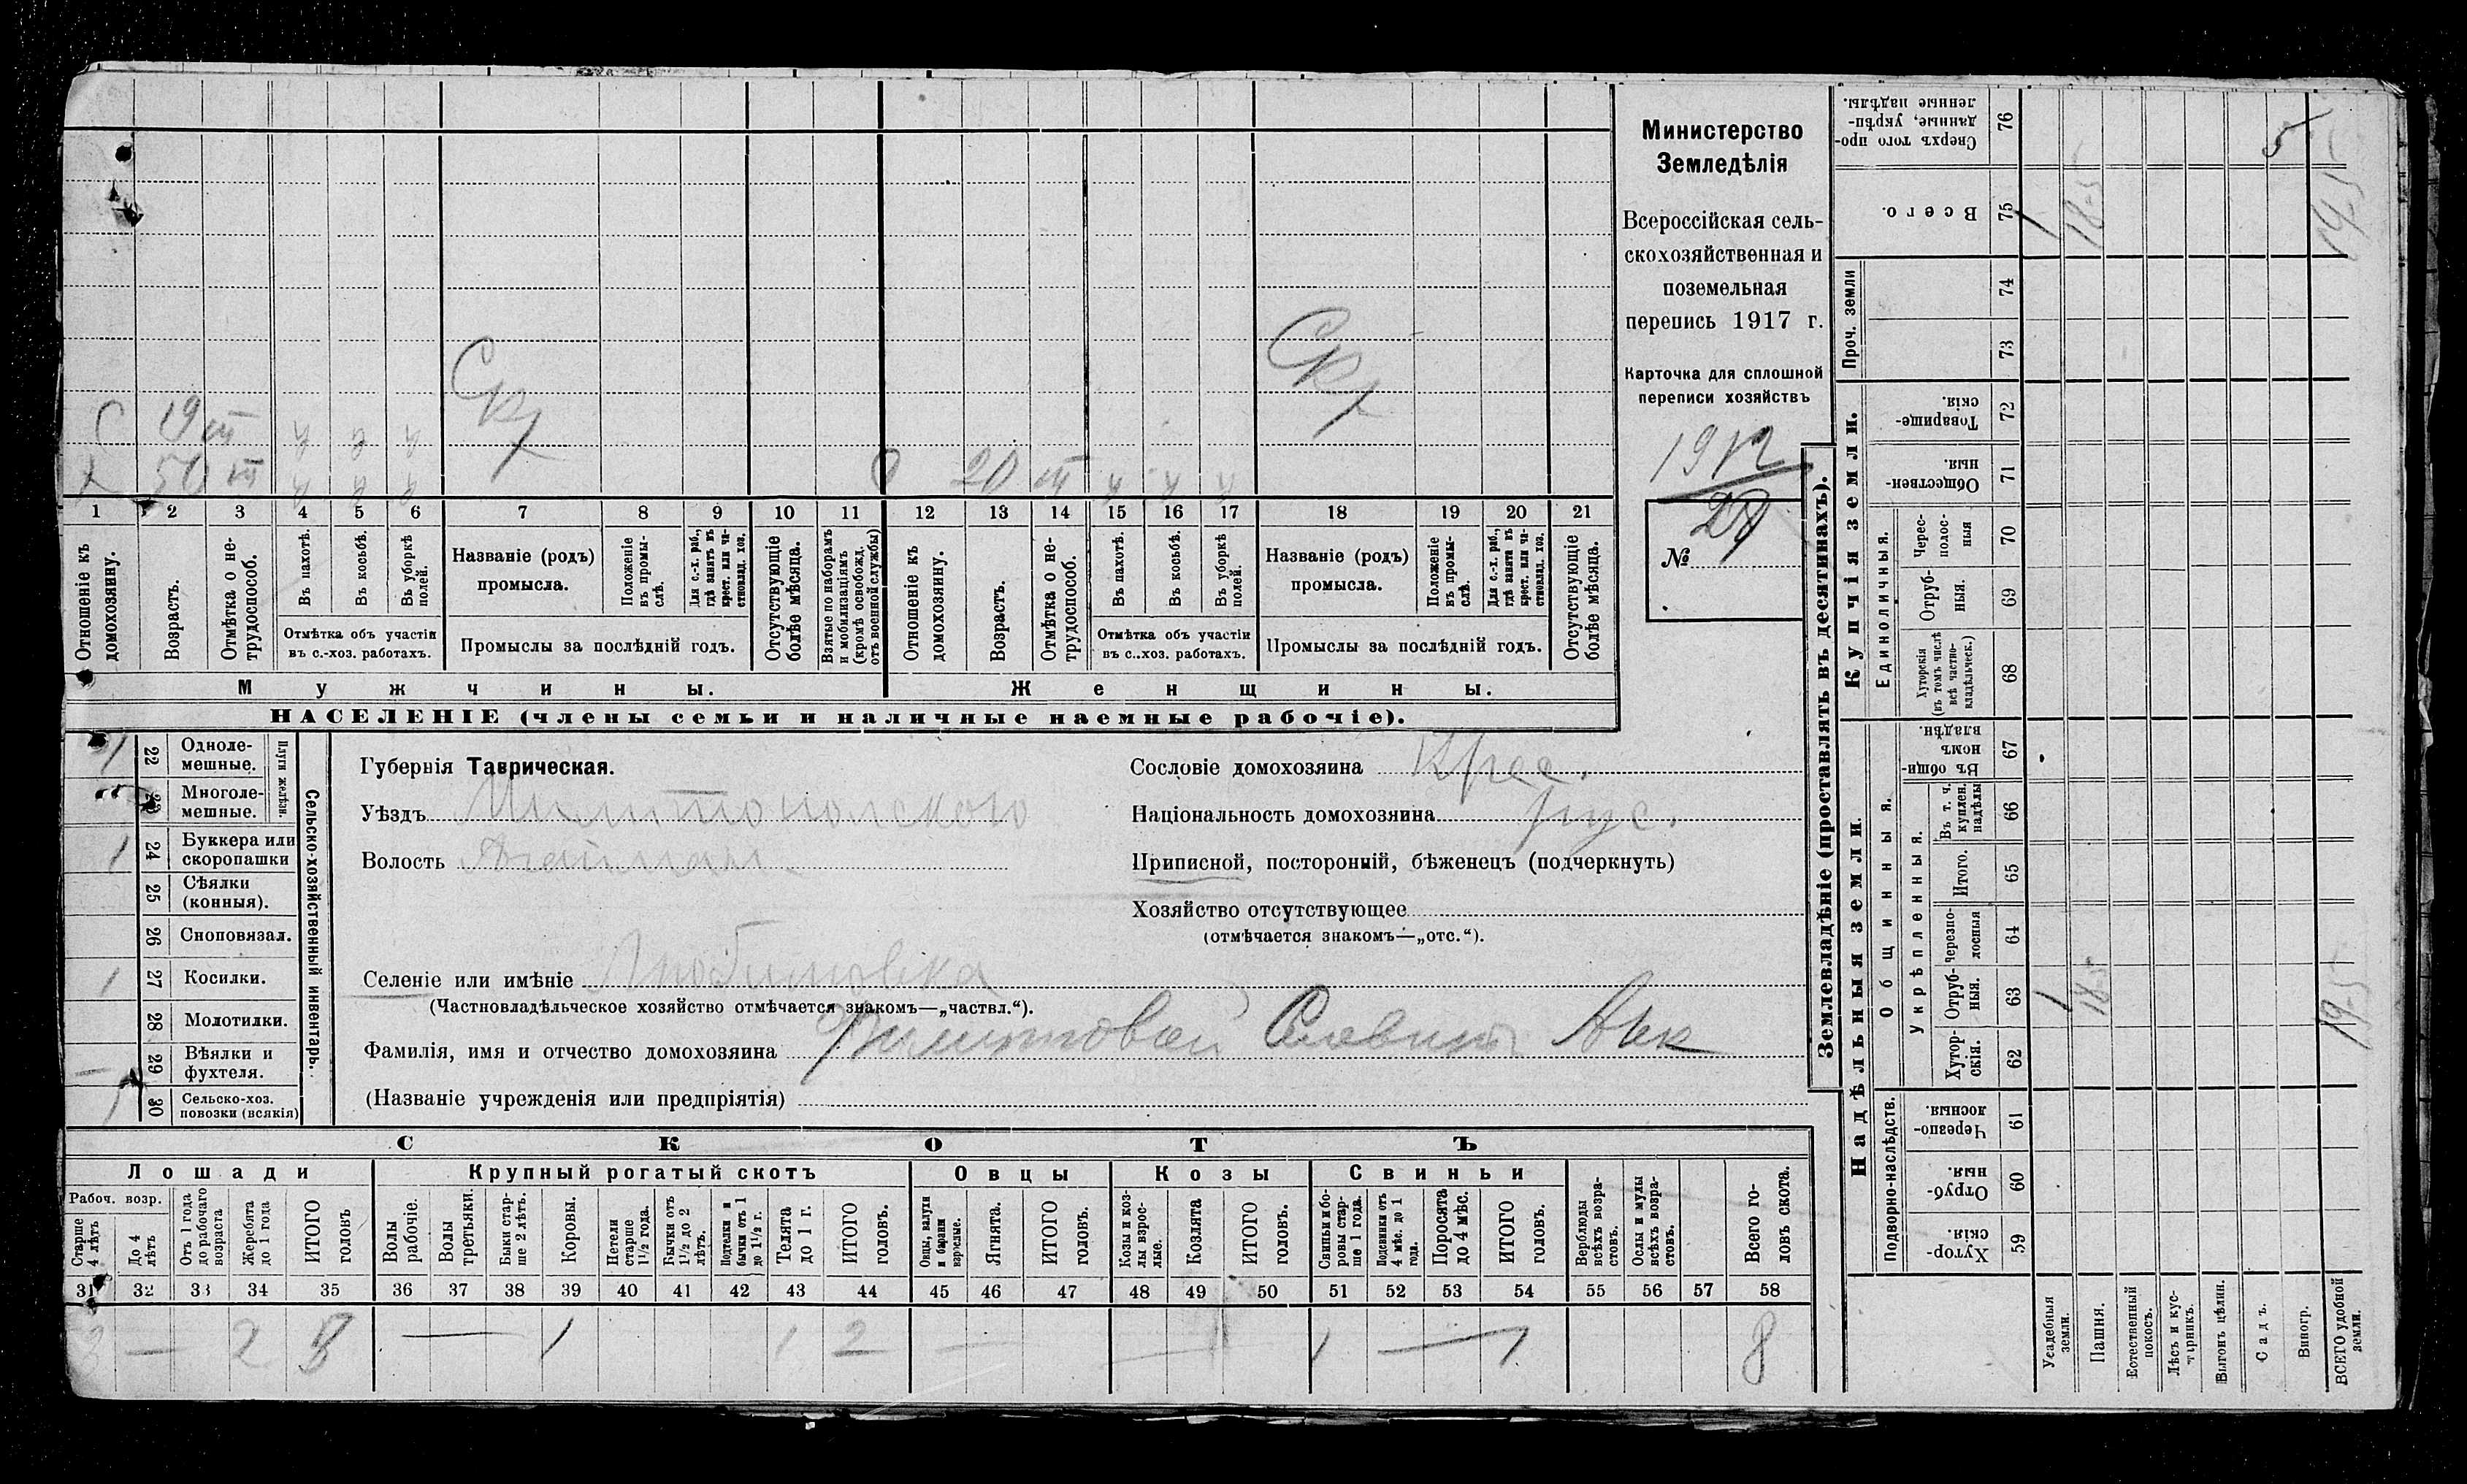 Министерство
Земледѣлія
Всероссійская сель-
скохозяйственная и
поземельная
перепись 1917 г.
Карточка для сплошной
переписи хозяйствъ
№
19 III
50 III
20 III
1 2 3 4 5 6 7 8 9 10 11 12 13 14 15 16 17 18 19 20 21
Отношеніе къ домохозяину.
Возрастъ.
Отмѣтка о не-трудоспособ.
Въ пахотѣ.
Въ косьбѣ.
Въ уборкѣ полей.
Отмѣтка объ участіи
въ с.-хоз. работахъ.
Названіе (родъ)
промысла.
Положеніе въ промы-слѣ.
Для с.-х. раб., гдѣ занятъ въ крест. или ча-стновлад. хоз.
Промыслы за послѣдній годъ.
Отсутствующіе болѣе мѣсяца.
Взятые по наборамъ и мобилизаціямъ (кромѣ освобожд. отъ военной службы)
Отношеніе къ домохозяину.
Возрастъ.
Отмѣтка о не-трудоспособ.
Въ пахотѣ.
Въ косьбѣ.
Въ уборкѣ полей.
Отмѣтка объ участіи
въ с.-хоз. работахъ.
Названіе (родъ)
промысла.
Положеніе въ промы-слѣ.
Для с.-х. раб., гдѣ занятъ въ крест. или ча-стновлад. хоз.
Промыслы за послѣдній годъ.
Отсутствующіе болѣе мѣсяца.
Мужчины. Женщины.
НАСЕЛЕНІЕ (члены семьи и наличные наемные рабочіе).
Сельско-хозяйственный инвентарь.
Плуги желѣзн.
1 22 Одноле-мешные.
23 Многоле-мешные.
1 24 Буккера или скоропашки
25 Сѣялки (конныя).
26 Сноповязал.
1 27 Косилки.
28 Молотилки.
29 Вѣялки и фухтеля.
1 30 Сельско-хоз. повозки (всякія)
Губернія Таврическая.
Уѣздъ
Волость
Селеніе или имѣніе Любимовка
(Частновладѣльческое хозяйство отмѣчается знакомъ—„частвл.“).
Фамилія, имя и отчество домохозяина
(Названіе учрежденія или предпріятія)
Сословіе домохозяина Крес.
Національность домохозяина рус.
Приписной, посторонній, бѣженецъ (подчеркнуть)
Хозяйство отсутствующее
(отмѣчается знакомъ—„отс.“).
СКОТЪ
Лошади Крупный рогатый скотъ Овцы Козы Свиньи
Рабоч. возр.
Старше 4 лѣтъ
До 4 лѣтъ
Отъ 1 года до рабочаго возраста
Жеребята до 1 года
ИТОГО головъ
Волы рабочіе.
Волы третьяки.
Быки стар-ше 2 лѣтъ.
Коровы.
Петели старше 1½ года.
Бычки отъ 1½ до 2 лѣтъ.
Подтелки и бычки отъ 1 до 1½ г.
Телята до 1 г.
ИТОГО головъ.
Овцы, валухи и бараны взрослые.
Ягнята.
ИТОГО головъ.
Козы и коз-лы взрос-лые.
Козлята
ИТОГО головъ.
Свиньи и бо-ровы стар-ше 1 года.
Подсвинки отъ 4 мѣс. до 1 года.
Поросята до 4 мѣс.
ИТОГО головъ.
Верблюды всѣхъ возра-стовъ.
Ослы и мулы всѣхъ возра-стовъ.
Всего го-ловъ скота.
31 32 33 34 35 36 37 38 39 40 41 42 43 44 45 46 47 48 49 50 51 52 53 54 55 56 57 58
— 2 — 1 1 2 — — 1 — 1 8
Землевладѣніе (проставлять въ десятинахъ).
Надѣльныя земли.
Купчія земли.
Проч. земли
Подворно-наслѣдств.
Общинныя.
Укрѣпленныя.
Единоличныя.
Хутор-скія. 59
Отруб-ныя. 60
Черезпо-лосныя. 61
Хутор-скія. 62
Отруб-ныя. 63
Черезпо-лосныя 64
Итого. 65
Въ т. ч. куплен. надѣлы 66
Въ общин-номъ владѣн. 67
Хуторскія (въ томъ числѣ всѣ частно-владѣльческ.) 68
Отруб-ныя. 69
Черес-полос-ныя 70
Обществен-ныя. 71
Товарище-скія. 72
73
74
Всего. 75
Сверхъ того про-данные, укрѣп-ленные надѣлы. 76
Усадебныя земли.
Пашня.
Естественный покосъ.
Лѣсъ и кус-тарникъ.
Выгонъ цѣлин.
Садъ.
Виногр.
ВСЕГО удобной земли.